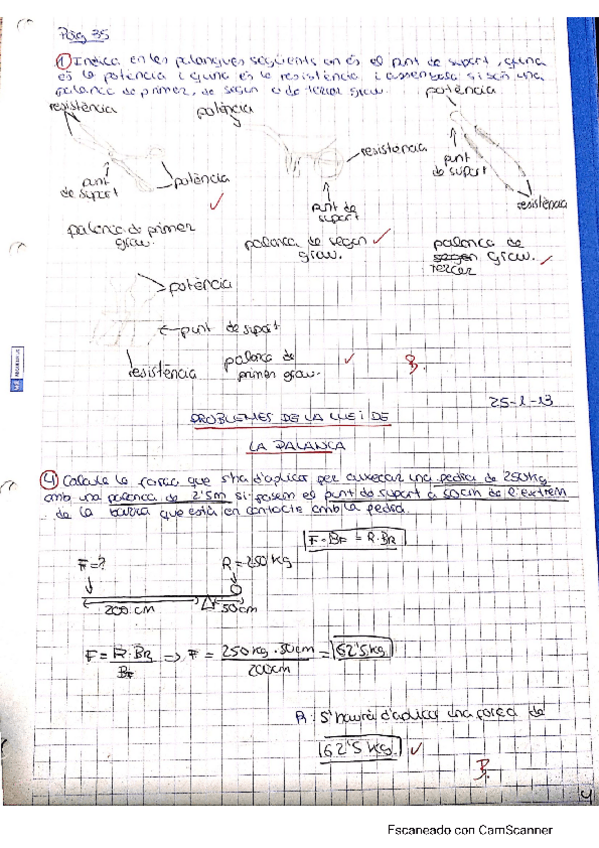 Pàg 35
1) Indica en les palanques següents on és el punt de suport, quina
és la potència i quina és la resistència, i assenyala si són una
palanca de primer, de segon o de tercer grau.
resistència
potència
potència
resistència
punt
de suport
potència
punt de
suport
punt
de suport
resistència
palanca de primer
grau.
palanca de segon
grau.
palanca de
segon grau.
tercer
potència
punt de suport
resistència
palanca de
primer grau.
B.
25-1-13
PROBLEMES DE LA LLEI DE
LA PALANCA
4) Calcula la força que s'ha d'aplicar per aixecar una pedra de 250kg
amb una palanca de 2'5m si posem el punt de suport a 50cm de l'extrem
de la barra que està en contacte amb la pedra.
F·BF = R·BR
F=?
R=250 kg
200 cm
50cm
F = R·BR / BF => F = 250 kg · 50cm / 200cm = 62'5 kg
R: S'haurà d'aplicar una força de
62'5 kg.
B.
4
Escaneado con CamScanner